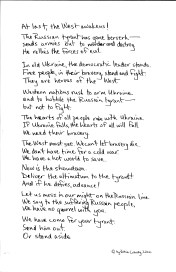 At last the West awakens!
The Russian tyrant has gone berserk—
sends armies out to murder and destroy
He rallies the forces of evil.
In old Ukraine, the democratic leader stands
Free people, in their bravery, stand and fight
They are heroes of the West
Western nations rush to arm Ukraine
and to hobble the Russian tyrant—
but not to fight
The hearts of all people now with Ukraine
If Ukraine falls, the hearts of all will fall
We need their bravery
The West must get. We can't let bravery die.
We don't have time for a cold war
We have a hot world to save.
Now is the showdown
Deliver the ultimatum to the tyrant
And if he defies, advance!
Let us mass in our might on the Russian line
We say to the suffering Russian people,
We have no quarrel with you.
We have come for your tyrant
Send him out.
Or stand aside
©